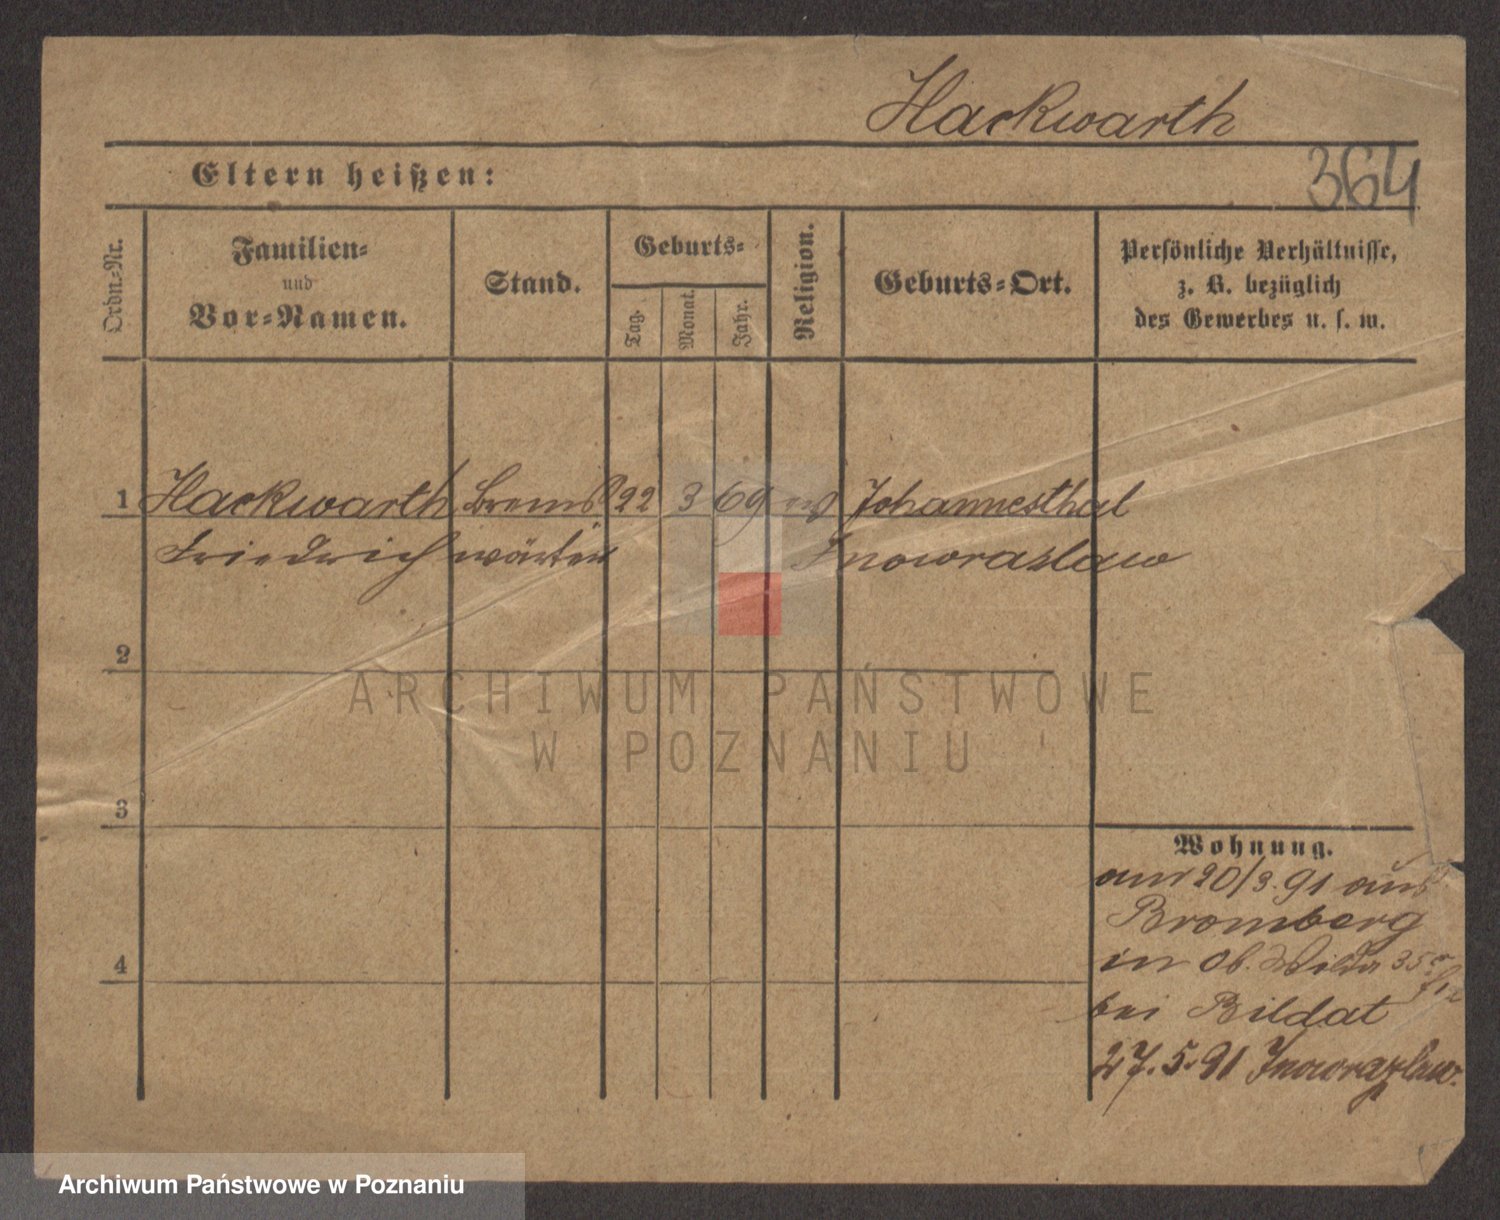 Hackwarth
364
Eltern heißen:
Ordn.-Nr.
Familien-
und
Vor-Namen.
Stand.
Geburts-
Tag.
Monat.
Jahr.
Religion.
Geburts-Ort.
Persönliche Verhältnisse,
z. B. bezüglich
des Gewerbes u. s. w.
1 Hackwarth Brems 22 3 69 Johannesthal
Friedrich wärter Inowraslaw
2
ARCHIWUM PAŃSTWOWE
W POZNANIU
3
Wohnung.
am 20/3.91 aus
Bromberg
in Ob. Wilda 35
4
bei Bildat
27.5.91 Inowrazlaw.
Archiwum Państwowe w Poznaniu